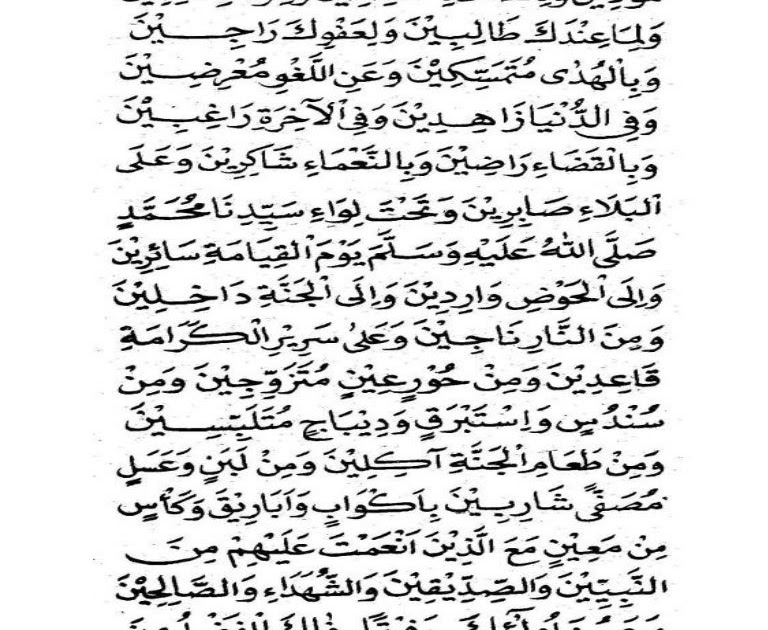 وَلِمَا عِنْدَكَ طَالِبِيْنَ وَلِعَفْوِكَ رَاجِـــيْنَ
وَبِالْهُدٰى مُتَمَسِّكِيْنَ وَعَنِ اللَّغْوِ مُعْرِضِـيْنَ
وَفِى الدُّنْيَا زَاهِـدِيْنَ وَفِى الْآخِرَةِ رَاغِبِـيْنَ
وَبِالْقَضَاءِ رَاضِيْنَ وَبِالنَّعْمَاءِ شَاكِرِيْنَ وَعَلَى
الْبَلَاءِ صَابِرِيْنَ وَتَحْتَ لِوَاءِ سَيِّدِنَا مُحَمَّدٍ
صَلَّى اللهُ عَلَيْهِ وَسَلَّمَ يَوْمَ الْقِيَامَةِ سَائِرِيْنَ
وَاِلَى الْحَوْضِ وَارِدِيْنَ وَاِلَى الْجَنَّةِ دَاخِـلِيْنَ
وَمِنَ النَّارِ نَاجِـيْنَ وَعَلٰى سَرِيْرِ الْكَرَامَةِ
قَاعِدِيْنَ وَمِنْ حُوْرٍ عِيْنٍ مُتَزَوِّجِيْنَ وَمِنْ
سُنْدُسٍ وَاِسْتَبْرَقٍ وَدِيْبَاجٍ مُتَلَبِّسِـــيْنَ
وَمِنْ طَعَامِ الْجَنَّةِ آكِلِيْنَ وَمِنْ لَبَنٍ وَعَسَلٍ
مُصَفًّى شَارِبِـيْنَ بِاَكْوَابٍ وَاَبَارِيْقَ وَكَأْسٍ
مِنْ مَعِيْنٍ مَعَ الَّذِيْنَ اَنْعَمْتَ عَلَيْهِمْ مِنَ
النَّبِيِّيْنَ وَالصِّدِّيْقِيْنَ وَالشُّهَدَاءِ وَالصَّالِحِيْنَ